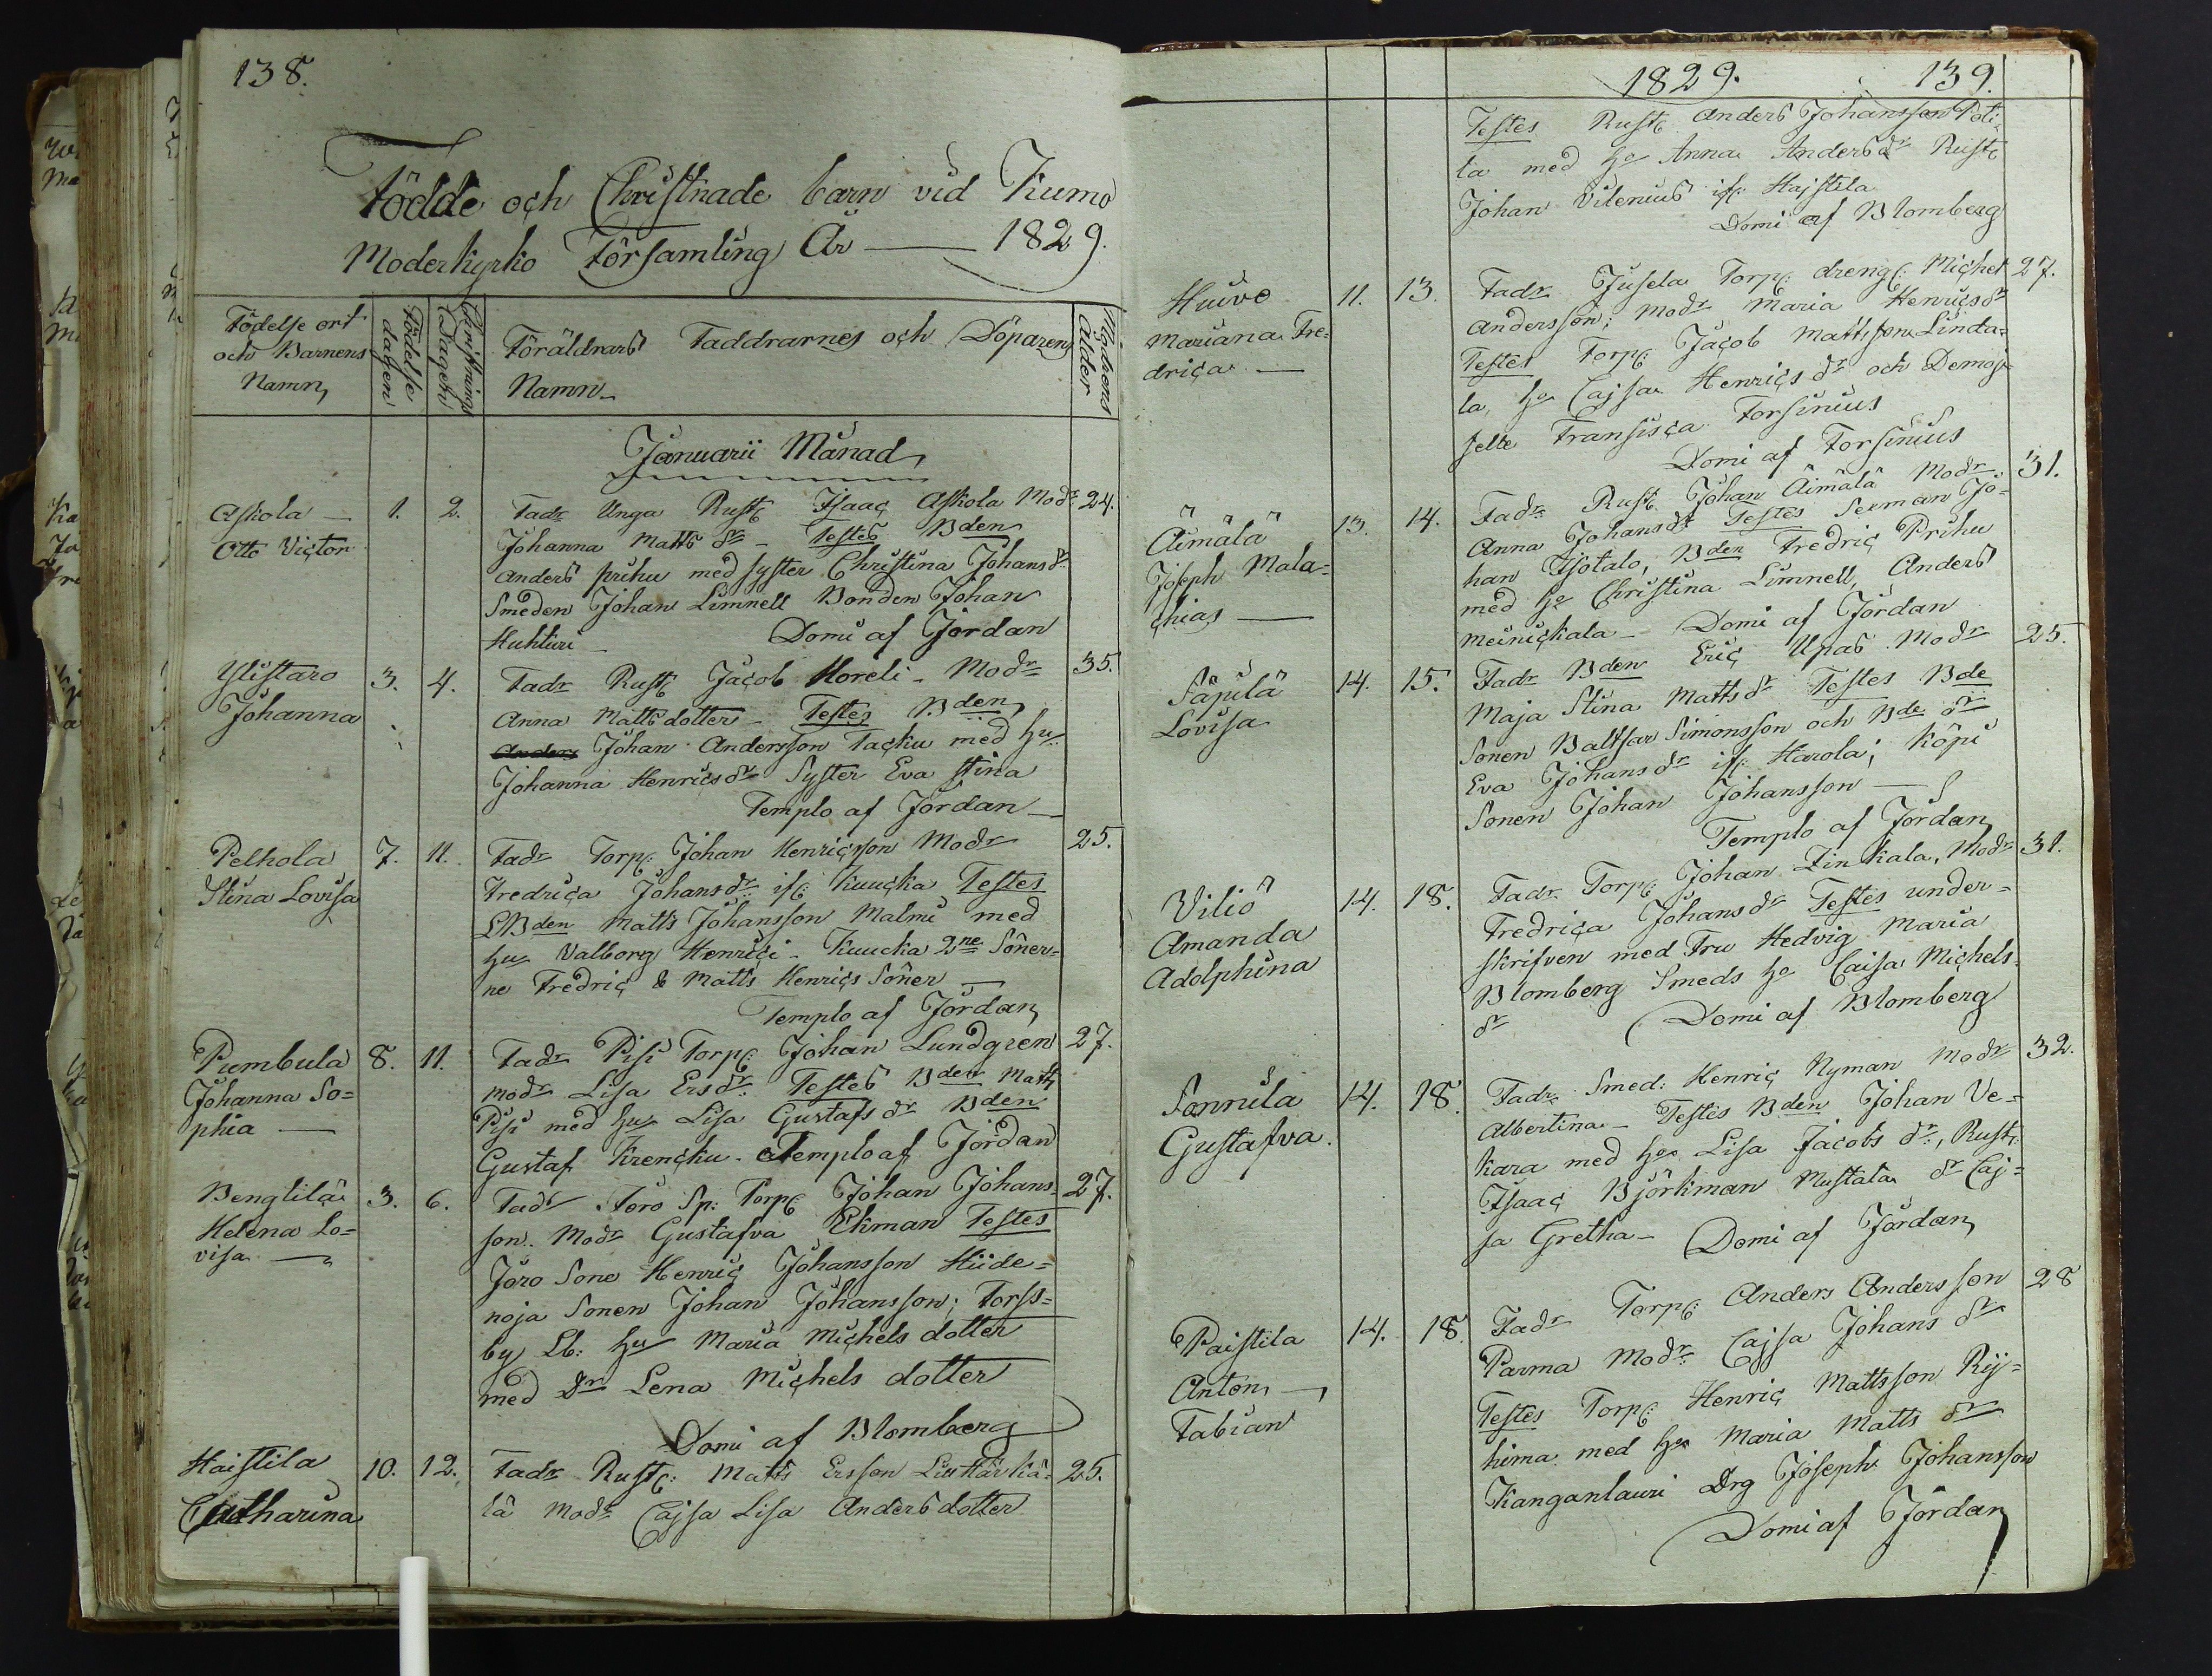 138.
Födde och Christnade barn vid Kumo
Moderkyrko Församling År — 1829.
Födelse ort
och Barnens
Namn,
Födelse
dagen
Christnings
Dagen
Föräldrars Faddrarnes och Döparens
Namn
Modrens
Ålder
Januarii Månad
Askola — 1. 2. Fadr Unga Rustc Isaac Askola Modr 24.
Otto Victor Johanna Matts dr — Testes Bden
Anders prihu med syster Christina Johans dr
Smeden Johan Limnell Bonden Johan
Huhturi — Domi af Jordan
Ylistaro 3. 4. Fadr Rustc Jacob Horeli — Modr 35.
Johanna Anna Mattsdotter — Testes Bden
Anders Johan Andersson Tacku med hu
Johanna Henricsdr Syster Eva Stina
Templo af Jordan —
Pelhola 7. 11. Fadr Torp: Johan Henricsson Modr 25.
Stina Lovisa Fredrica Johansdr ifr: Kuucka Testes
LBden Matts Johansson Malmi med
hu Valborg Henrici — Kuucka 2ne Söner=
ne Fredric & Matts Henrics Söner —
Templo af Jordan
Pumbula 8. 11. Fadr Pisi Torp: Johan Lundgren 27.
Johanna So= modr Lisa Ersdr: Testes Bden Matts
phia — Pisi med hu Lisa Gustafs dr Bden
Gustaf Krencku. Templo af Jordan
Bengtilä 3. 6. Fadr Joro Sp: Torp: Johan Johans= 27.
Helena Lo= son. Modr Gustafva Ekman Testes
visa — Joro Sone Henric Johansson Hiide=
noja Sonen Johan Johansson; Forss=
by Lb: hu Maria Michels dotter
med Dr Lena Michels dotter
Domi af Blomberg
Haistila 10. 12. Fadr Rustc: Matts Ersson 25.
Catharina lä Modr Cajsa Lisa Andersdotter
1829. 139.
Testes Rustc Anders Johansson Poti
la med hu Anna Andersdr Rustc
Johan Vilenius ifr: Hajstila
Domi af Blomberg
Huivo 11. 13. Fadr Jusela Torp: drengc: Michel 27.
Mariana Fre= Andersson; Modr Maria Henricsdr
drica — Testes Torp: Jacob Mattsson Linda=
la, hu Cajsa Henrics dr och Demoi=
selle Fransisca Forsinius
Domi af Forsinius
Äimälä 13. 14. Fadr Rustc Johan Äimälä Modr: 31.
Joseph Mala= Anna Johansdr Testes Sexman Jo=
chias — han Isotalo, Bden Fredric Prihu
med hu Christina Limnell, Anders
meinickala — Domi af Jordan
Säpilä 14. 15. Fadr Bden Eric Upas Modr 25.
Lovisa Maja Stina Mattsdr Testes Bde
Sonen Baltsar Simonsson och Bde dr
Eva Johansdr ifr: Harola; Köpi
Sonen Johan Johansson —
Templo af Jordan
Viliö 14. 18. Fadr Torp: Johan Finkala, Modr 31.
Amanda Fredrica Johansdr Testes under=
Adolphina skrifven med Fru Hedvig Maria
Blomberg Smeds hu Caisa Michels
dr Domi af Blomberg
Sonnila 14. 18. Fadr Smed: Henric Nyman Modr 32.
Gustafva. Albertina — Testes Bden Johan Ve=
kara med hu Lisa Jacobs dr, Rustc
Isaac Björkman Mustala dr Caj=
sa Gretha — Domi af Jordan
Paistila 14. 18. Fadr Torp: Anders Andersson 28
Anton — Parma Modr: Cajsa Johans dr
Fabian Testes Torp: Henric Mattsson Rij=
hima med hu Maria Matts dr
Kanganlauri Drg Joseph Johansson
Domi af Jordan